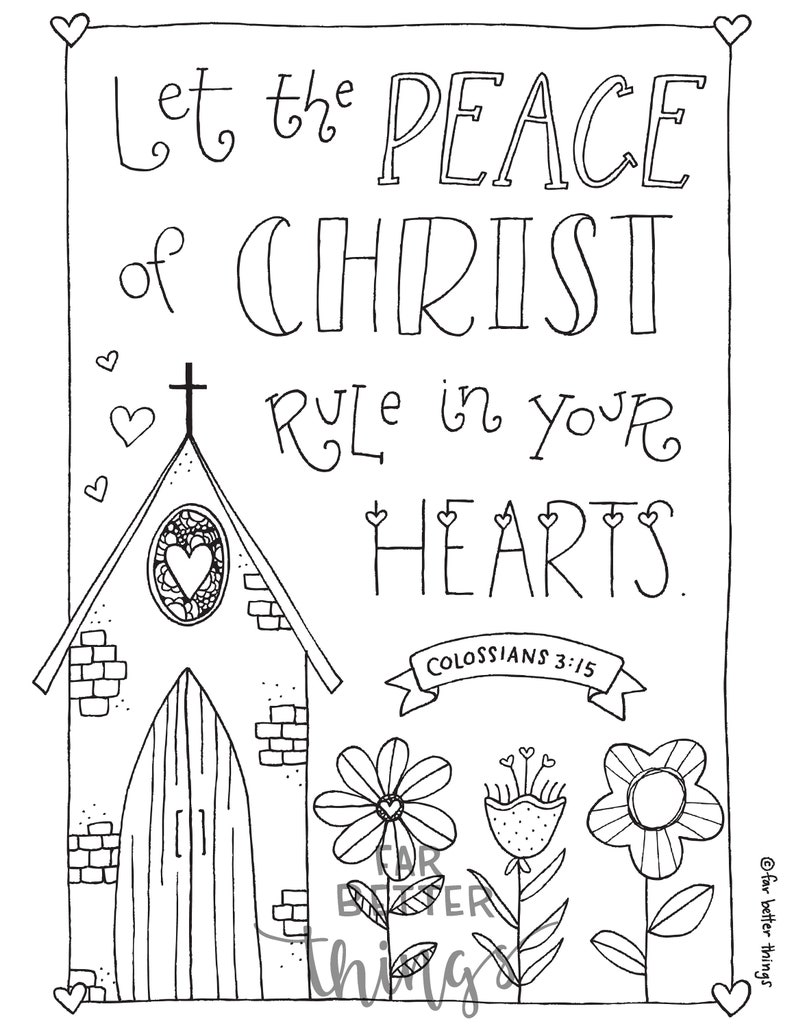 Let the PEACE
of CHRIST
RULe in YOUR
HEARTS.
COLOSSIANS 3:15
FAR
BETTER
things
©far better things